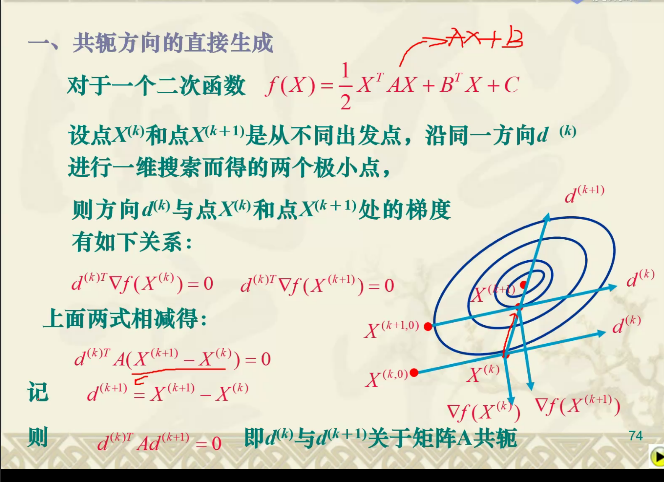 一、共轭方向的直接生成
AX+B
对于一个二次函数 f(X) = 1/2 X^T AX + B^T X + C
设点X^(k)和点X^(k+1)是从不同出发点，沿同一方向d ^(k)
进行一维搜索而得的两个极小点，
则方向d^(k)与点X^(k)和点X^(k+1)处的梯度
有如下关系：
d^(k)T ∇f(X^(k)) = 0 d^(k)T ∇f(X^(k+1)) = 0
上面两式相减得：
d^(k)T A(X^(k+1) − X^(k)) = 0
记 d^(k+1) = X^(k+1) − X^(k)
则 d^(k)T Ad^(k+1) = 0 即d^(k)与d^(k+1)关于矩阵A共轭
d^(k+1)
d^(k)
X^(k+1)
d^(k)
X^(k+1,0)
X^(k,0)
X^(k)
∇f(X^(k)) ∇f(X^(k+1))
74